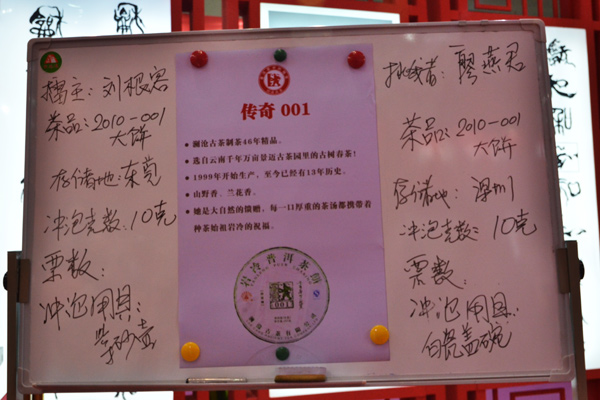 擂主：刘根容
茶品：2010-001
大饼
存储地：东莞
冲泡克数：10克
票数：
冲泡用具：
紫砂壶
传奇 001
澜沧古茶制茶46年精品。
选自云南千年万亩景迈古茶园里的古树春茶！
1999年开始生产，至今已经有13年历史。
山野香、兰花香。
她是大自然的馈赠，每一口厚重的茶汤都携带着
种茶始祖岩冷的祝福。
岩冷普洱茶饼
001
挑战者：廖燕君
茶品：2010-001
大饼
存储地：深圳
冲泡克数：10克
票数：
冲泡用具：
白瓷盖碗